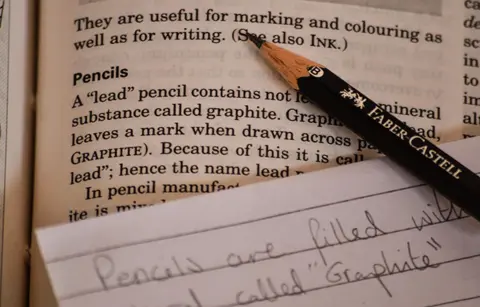 They are useful for marking and colouring as
well as for writing. (See also INK.)
Pencils
A "lead" pencil contains not mineral
substance called graphite.
leaves a mark when drawn across
GRAPHITE). Because of this it is
lead"; hence the name lead
In pencil
ite is
4B
FABER CASTELL
Pencils are filled with
called "Graphite"